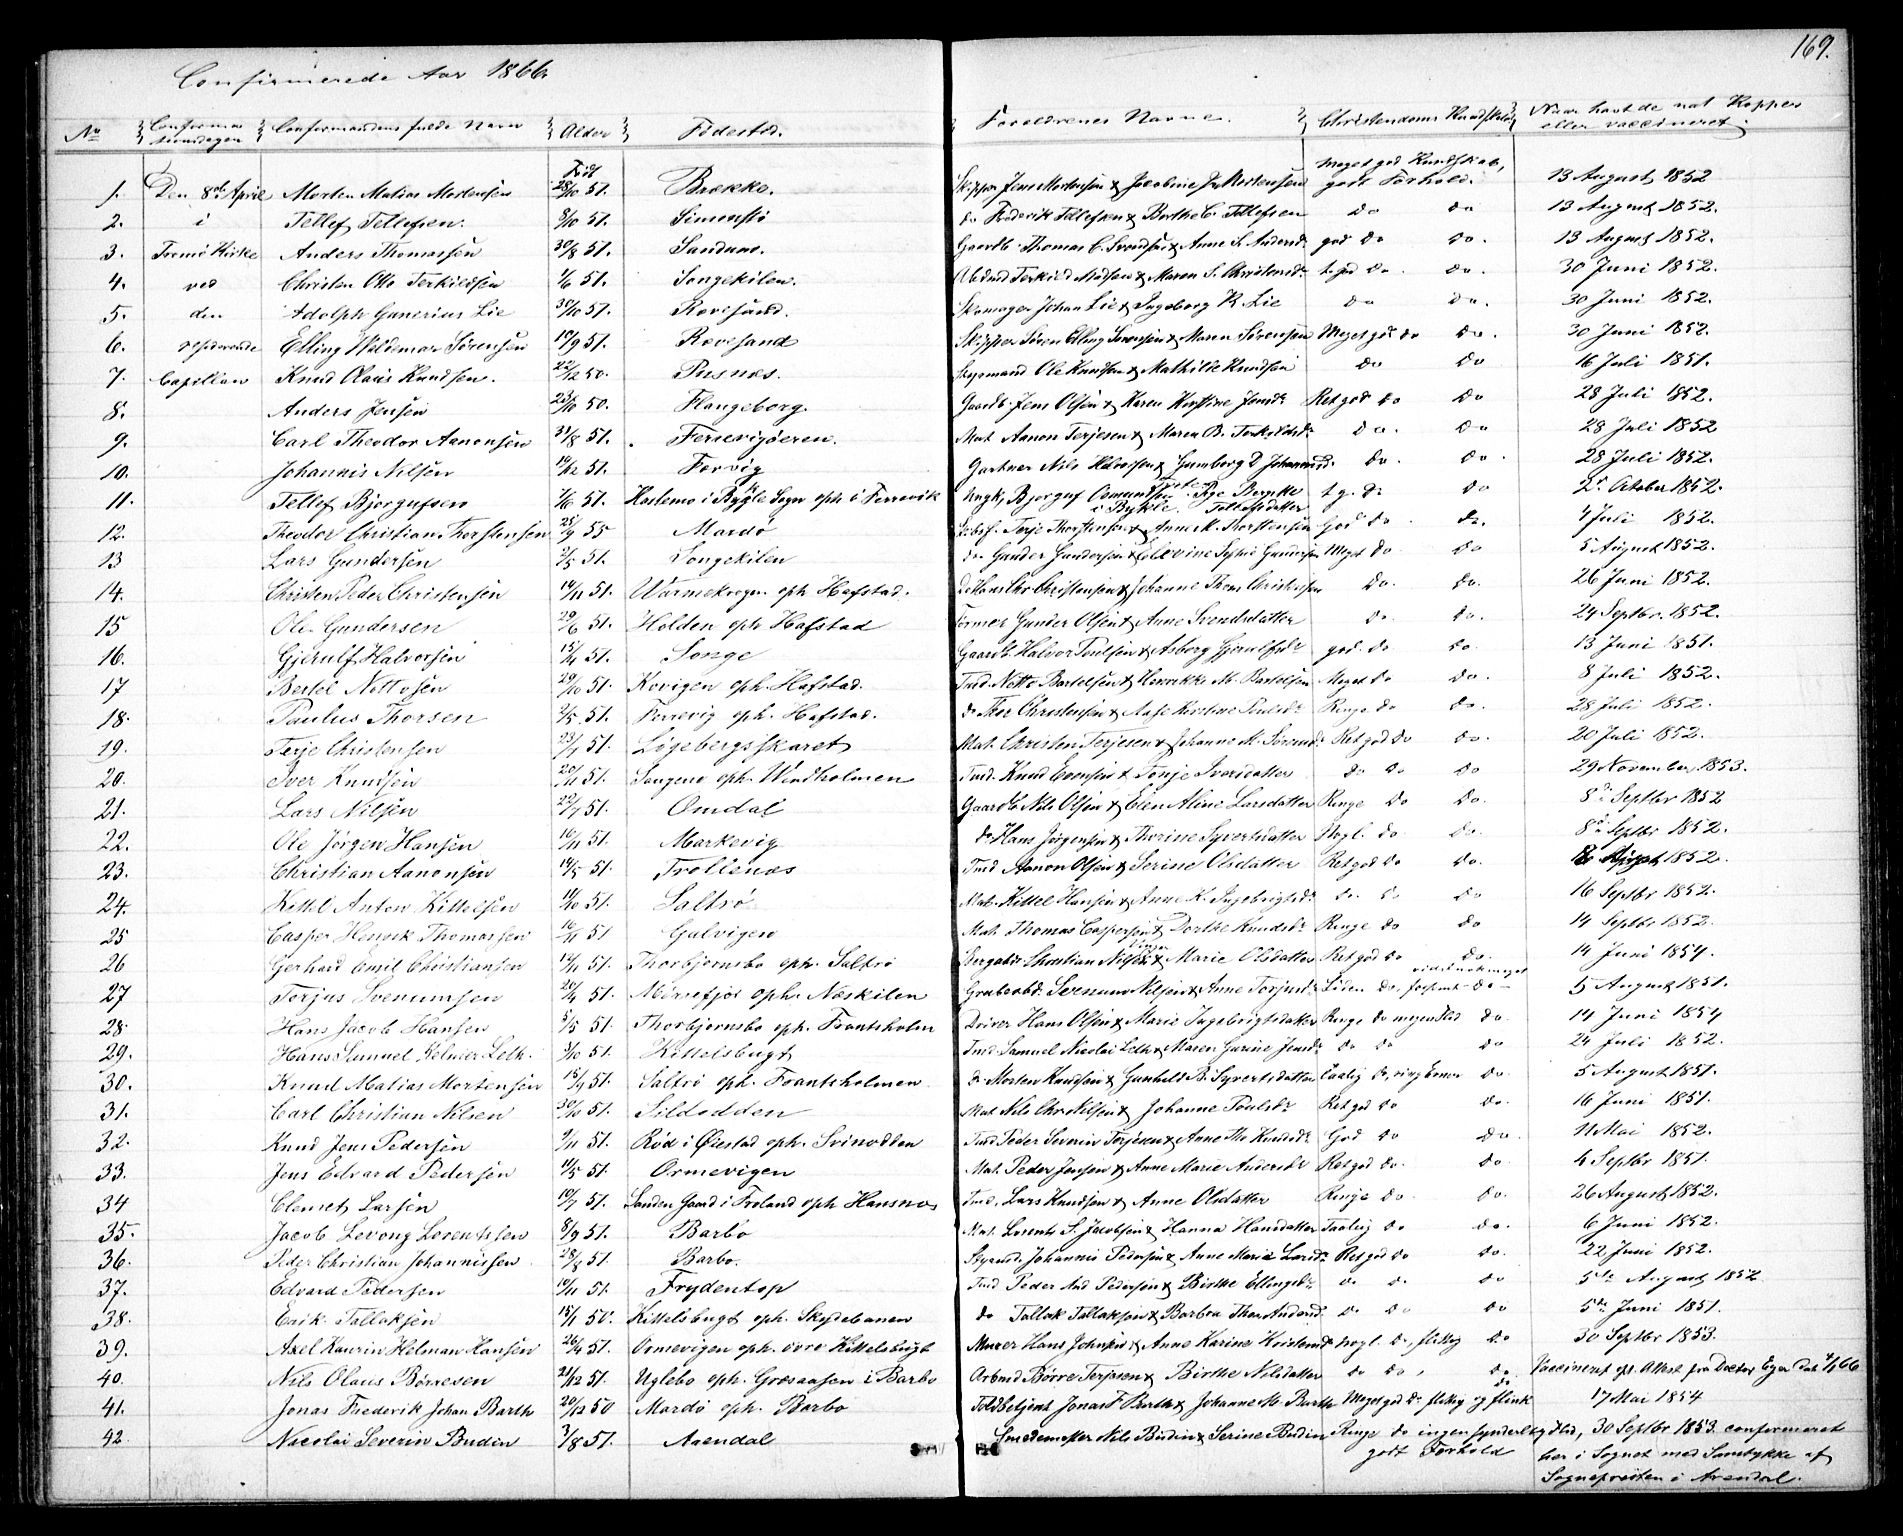 169.
Confirmerede Aar 1866.
No Confirmationsdagen Confirmandens fulde Navn Alder Fødested. Forældrenes Navne. Christendoms Kundskab Naar havt de nat. Kopper eller vaccineret.
Født
1. Den 8de April Morten Matias Mortensen 28/10 51. Brække. Skipper Jens Mortensen & Jacobine J. Mortensen Meget god Kundskab, godt Forhold. 13 August 1852
2. i Tellef Tellefsen. 8/10 51. Simonstø do Frederik Tellefsen & Berthe C. Tellefsen do do 13 August 1852.
3. Tromø Kirke Anders Thomassen 30/8 51. Sandum. Gaardb. Thomas C. Svendsen & Anne S. Andersdr god do do. 13 August 1852.
4. ved Christen Otto Terkildsen 1/6 51. Songekilen. Terkild Madsen & Maren S. Christensdr t. god do. do. 30 Juni 1852.
5. den Adolph Gunerius Lie 30/10 51. Revesand. Skomager Johan Lie & Ingeborg K. Lie do do. 30 Juni 1852.
6. residerende Elling Waldemar Sørensen 19/9 51. Revesand Skipper Søren Elling Sørensen & Maren Sørensen Meget god do do. 30 Juni 1852.
7. Capellan Knud Olaus Knudsen. 22/12 50. Pusnes. Styrmand Ole Knudsen & Mathilde Knudsen do do 16 Juli 1851.
8. Anders Jensen 23/10 50. Flangeborg. Gaardb. Jens Olsen & Karen Kirstine Jensdr Ret god do do 28 Juli 1852.
9. Carl Theodor Aanonsen 31/8 51. Færvigøeren. Mat. Aanon Terjesen & Maren B. Terkildsdr do. do 28 Juli 1852
10. Johannis Nilsen 19/12 51. Færvig Gartner Nils Halvorsen & Gunborg D. Johannesd. do. do. 28 Juli 1852.
11. Tellef Bjorgufsen 7/6 51. Haslemo i Bygle Sogn oph. i Færevik Ungk. Bjorguf Osmundsen & Pige Bergitte Tellefsdatter i Bykle. t. g. do do 2den October 1852.
12. Theodor Christian Thorstensen 25/9 55 Mardø Terje Thorstensen & Anne M. Thorstensen God do do. 4 Juli 1852.
13 Lars Gundersen 2/5 51. Songekilen do Gunder Gundersen & Elevine Sophie Gundersen Meget do do 5 August 1852.
14. Christen Peder Christensen 14/11 51. Warmekrogen oph. Hafstad. do Hans Chr. Christensen & Johanne Thom. Christensen do. do. 26 Juni 1852.
15 Ole Gundersen 29/6 51. Holden oph Hafstad Tømmer Gunder Olsen & Anne Svendsdatter do. do. 24 Septbr. 1852.
16. Gjerulf Halvorsen 15/4 51. Songe Gaardb. Halvor Poulsen & Asborg Gjerulfsdr god. do do. 13 Juni 1851.
17 Bertel Nottosen 29/10 51. Kovigen oph Hafstad. Tmd. Notto Bertelsen & Henrikke M. Bertelsen Meget do do. 8 Juli 1852.
18. Paulus Thorsen 2/5 51. Færrevig oph. Hafstad. do Thor Christensen & Aase Kirstine Poulsdr Ringe do do. 28 Juli 1852.
19. Terje Christensen 23/7 51. Løgebergsskaret Mat. Christen Terjesen & Johanne M. Sørensdr Ret god do do. 20 Juli 1852.
20. Iver Knudsen 20/11 51. Songene oph. Windholmen Tmd. Knud Evensen & Tonje Iversdatter do do do 29 November 1853.
21. Lars Nilsen 22/7 51. Omdal Gaardb. Nils Olsen & Elen Aline Larsdatter Ringe do do. 8de Septbr 1852
22. Ole Jørgen Hansen 16/11 51. Markevig do Hans Jørgensen & Thorine Syvertsdatter Nogl. do do. 8de Septbr 1852.
23. Christian Aanonsen 14/5 51. Trollenæs Tmd Aanon Olsen & Serine Olsdatter Ret god do do. August 1852.
24. Kittel Anton Kittelsen 11/10 51. Saltrø Mat. Kittel Hansen & Anne K. Ingebrigtsdr do. do do 16 Septbr 1852.
25 Casper Henrik Thomassen 16/11 51 Galvigen Mat. Thomas Caspersen & Dorthe Knudsdr Ringe do do 14 Septbr 1852.
26 Gerhard Emil Christiansen 14/11 51. Thorbjørnsbo oph. Saltrø Christian Nilsen & Marie Olsdatter Ret god do do. 14 Juni 1854.
27 Torjus Svenumsen 20/4 51. Mørsefjær oph. Næskilen Grubearbd. Svenum Nilsen & Anne Torjusdr Liden do, do 5 August 1851.
28. Hans Jacob Hansen 5/5 51. Thorbjørnsbo oph. Frantsholm Driver Hans Olsen & Marie Ingebrigtsdatter Ringe do megen Flid do 14 Juni 1854
29. Hans Samuel Helmer Leth. 3/10 51. Kittelsbugt Tmd. Samuel Nicolai Leth & Maren Gurine Jensdr do do do 24 Juli 1852.
30. Knud Matias Mortensen 15/7 51. Saltrø oph. Frantsholmen do Morten Knudsen & Gunhild B. Syvertsdatter Taalig do, ring Evner do 5 August 1851.
31. Carl Christian Nilsen 30/10 51. Sildodden Mat Nils Chr. Nilsen & Johanne Poulsdr Ret god do do. 16 Juni 1851.
32. Knud Jens Pedersen 9/11 51. Rød i Øiestad oph. Svinodden Tmd Peder Severin Terjesen & Anne Ths. Knudsdr God do do. 11 Mai 1852.
33. Jens Edvard Pedersen 11/5 51. Ormevigen Mat. Peder Jensen & Anne Marie Andersdr Ret god do. do. 4 Septbr 1851.
34 Clemet Larsen 10/7 51. Sanden Gaard i Froland oph Hansnæs Tmd. Lars Knudsen & Anne Olsdatter Ringe do. do. 26 August 1852.
35. Jacob Levong Lorentssen 8/9 51. Barbo Mat. Lorents S. Jacobsen & Hanna Hansdatter Taalig do do. 6 Juni 1852.
36. Peder Christian Johannissen 28/8 51. Barbo. Styrmd. Johannis Pedersen & Anne Marie Larsdr Ret god do do. 22 Juni 1852.
37. Edvard Pedersen 10/11 51. Frydentop Tmd Peder And. Pedersen & Birthe Ellingsdr do do. do 5te August 1852
38. Erik Tallaksen 15/1 50. Kittelsbugt oph. Skydebanen do Tallak Tallaksen & Barbra Thea Andersd. do do do 5de Juni 1851.
39. Axel Laurin Helman Hansen 26/4 51. Ormevigen oph. øvre Kittelsbugt Murer Hans Johnsen & Anne Karine Kristensdr nogl. do, flittig do 30 Septbr 1853.
40. Nils Olaus Børresen 21/12 51. Uglebo oph. Græsaasen i Barbo Arbmd Børre Terjesen & Birthe Nilsdatter do do, do. Vaccineret if. Attest fra Doctor Eger Dat 4/1 66
41. Jonas Frederik Johan Barth 20/12 50 Mardø oph. Barbo Toldbetjent Jonas F. Barth & Johanne M. Barth Meget god do flittig og flink do 17 Mai 1854
42. Nicolai Severin Budin 3/8 51. Arendal Smedemester Nils Budin & Serine Budin Ringe do ingen synderlig Flid, godt Forhold 30 Septbr 1853. confirmeret
her i Sognet med Samtykke af
Sognepresten i Arendal.